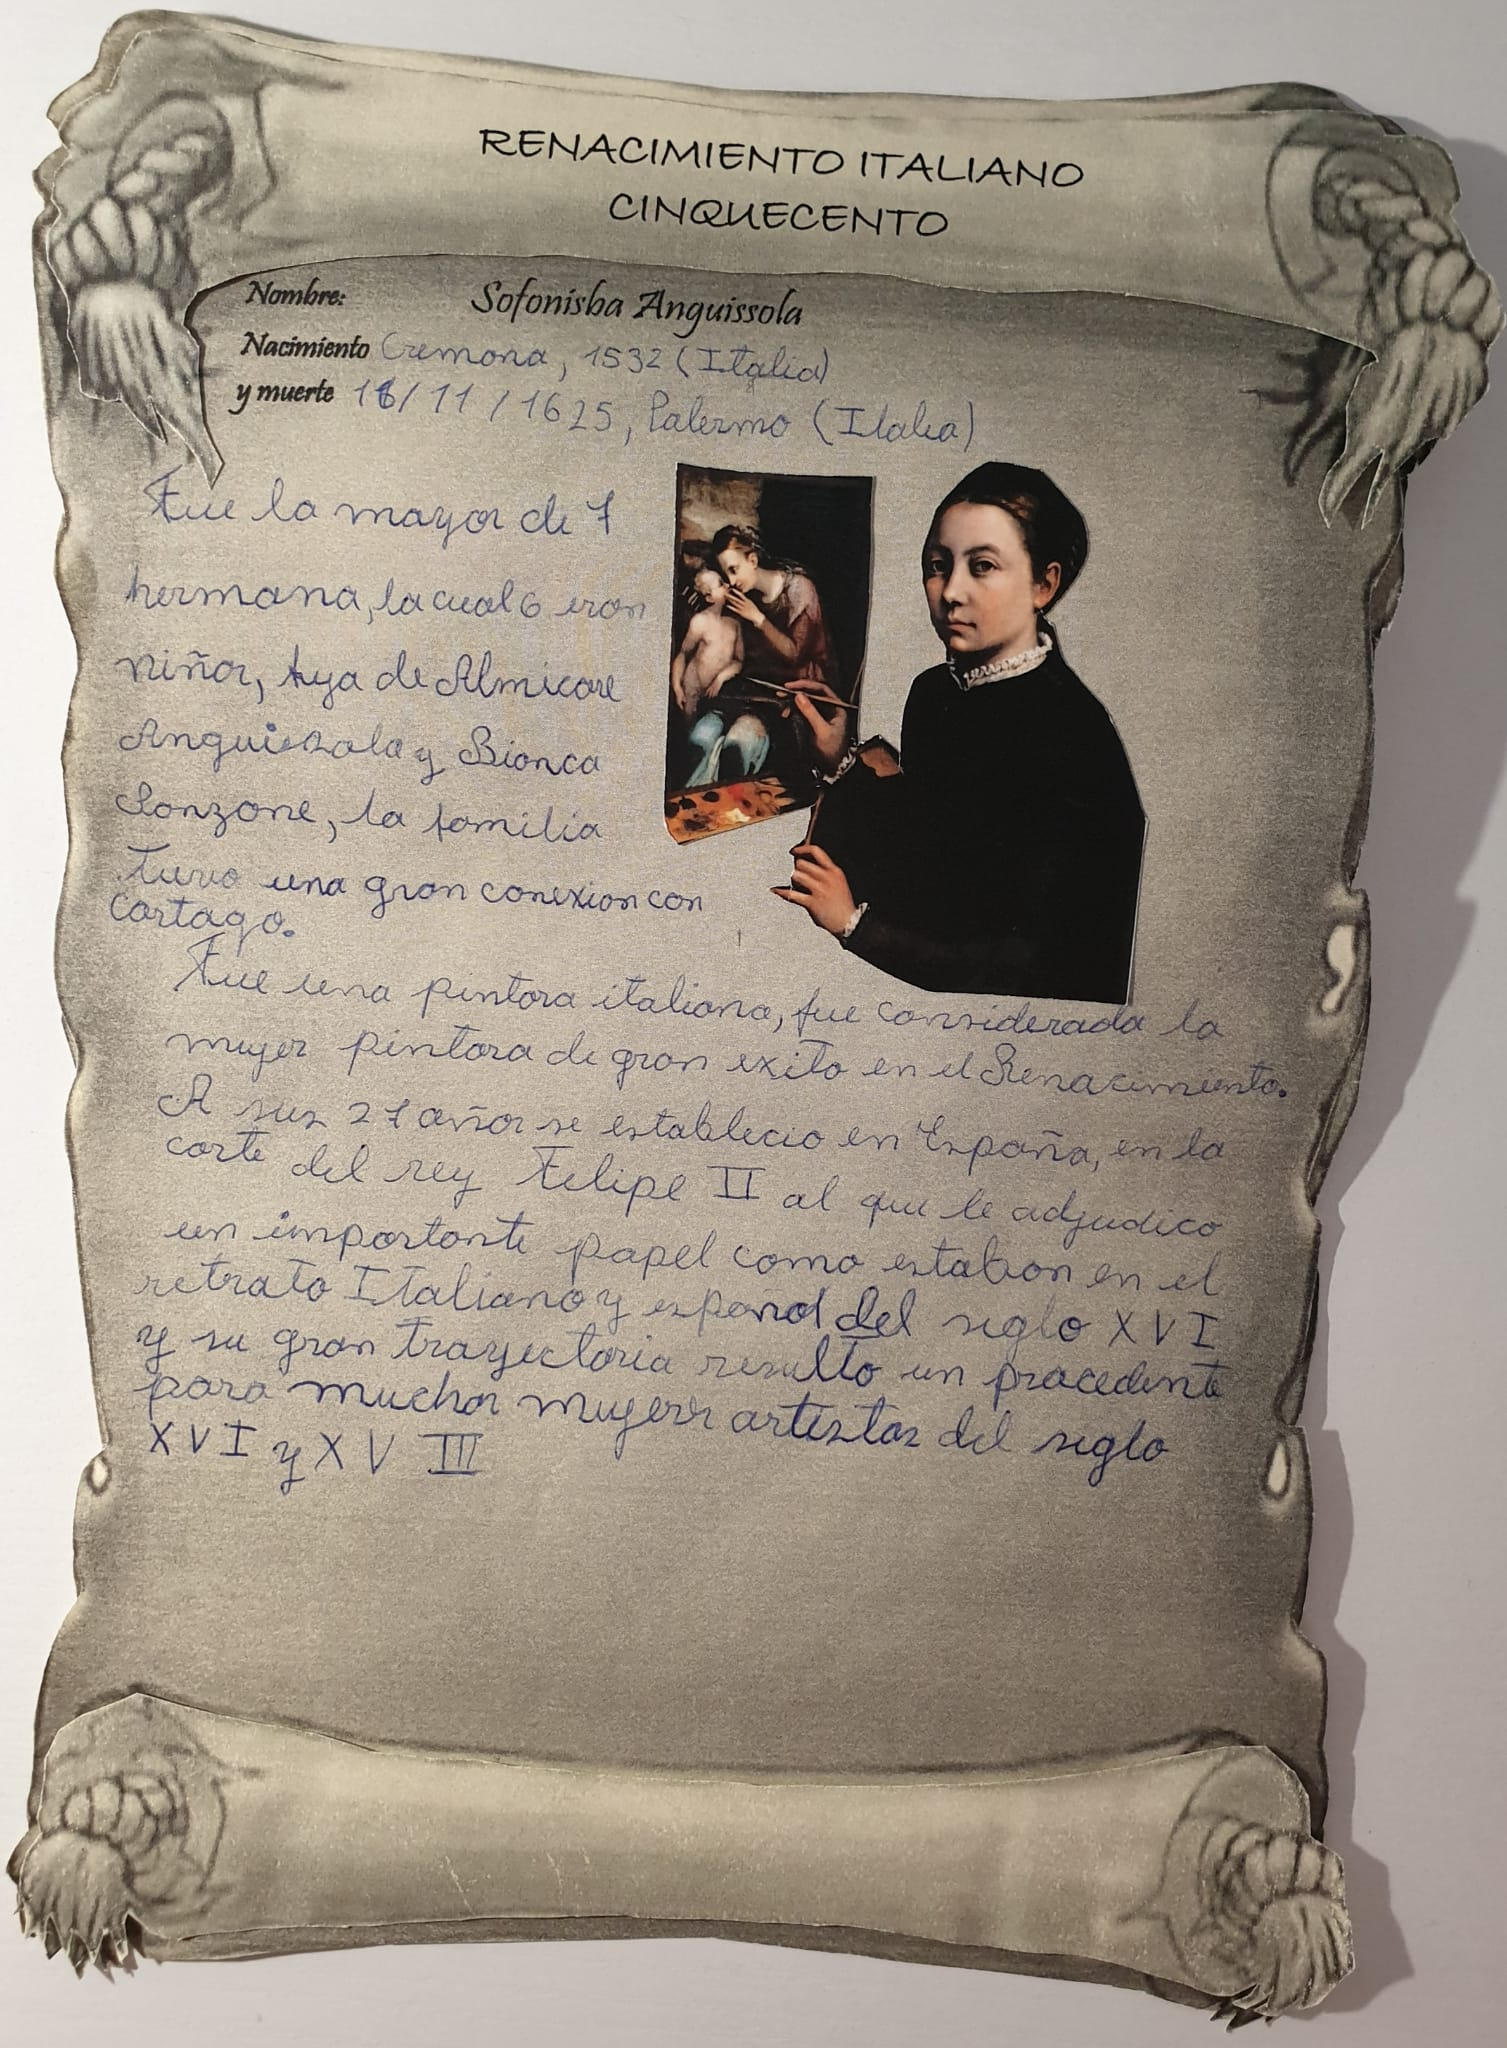 RENACIMIENTO ITALIANO
CINQUECENTO
Nombre: Sofonisba Anguissola
Nacimiento Cremona, 1532 (Italia)
y muerte 16/11/1625, Palermo (Italia)
Fue la mayor de 7
hermana, la cual 6 eran
niñas, hija de Almicare
Anguissola y Bianca
Ponzone, la familia
tuvo una gran conexion con
Cartago.
Fue una pintora italiana, fue considerada la
mujer pintora de gran exito en el Renacimiento.
A sus 27 años se establecio en España, en la
corte del rey Felipe II al que le adjudico
un importante papel como estaban en el
retrato Italiano y español del siglo XVI
y su gran trayectoria resulto un precedente
para muchas mujeres artistas del siglo
XVI y XVIII